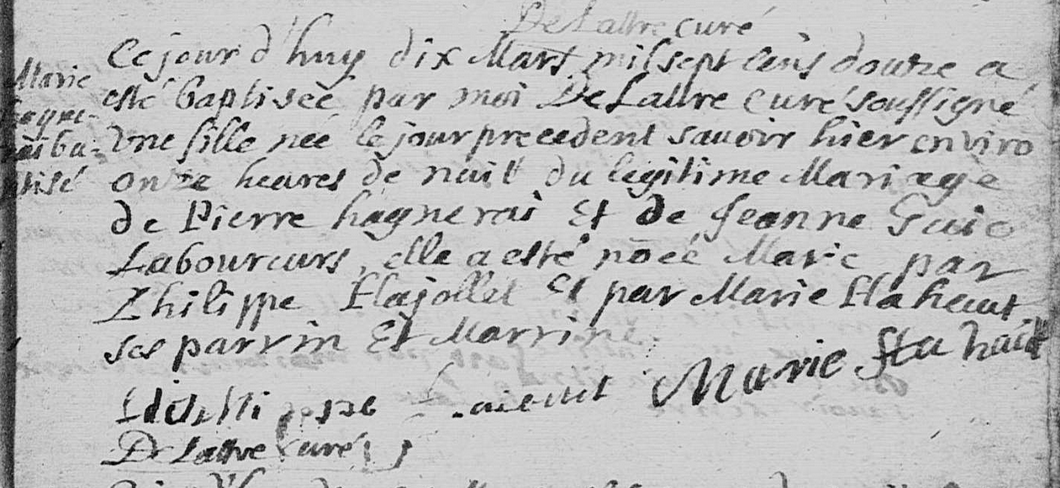 DeLattre curé
Ce jour d'huy dix Mars mil sept cens douze a
esté baptiseé par moi DeLattre curé soussigné
Une fille neé le jour precedent savoir hier enviro
Onze heures de nuit du legitime Mariage
de Pierre hagnerai Et de Jeanne
Laboureurs, elle a esté noéé Marie par
Philippe Flajollet Et par Marie Flahaut
ses parrin Et Marrine.
Marie Flahaut
DeLattre Curé
Marie